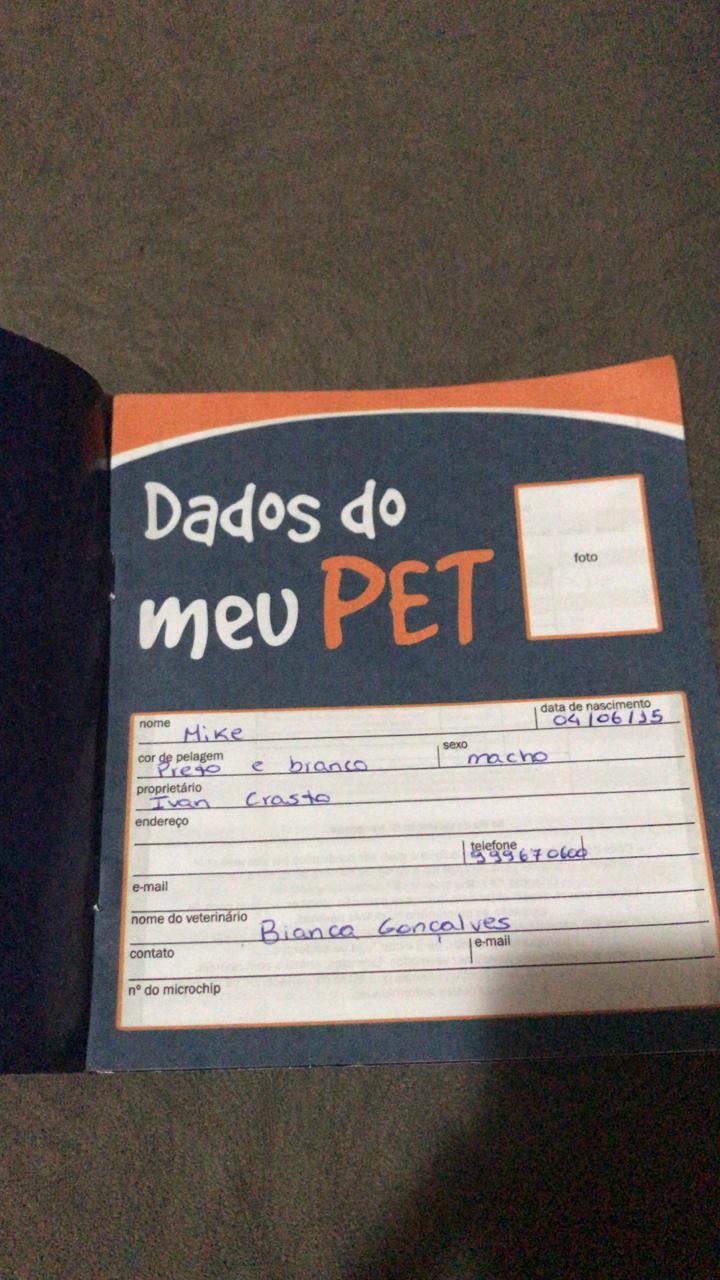 Dados do
meu PET
foto
nome Mike data de nascimento 04/06/15
cor de pelagem Preto e branco sexo macho
proprietário Ivan Crasto
endereço
telefone 999670600
e-mail
nome do veterinário Bianca Gonçalves
contato e-mail
nº do microchip